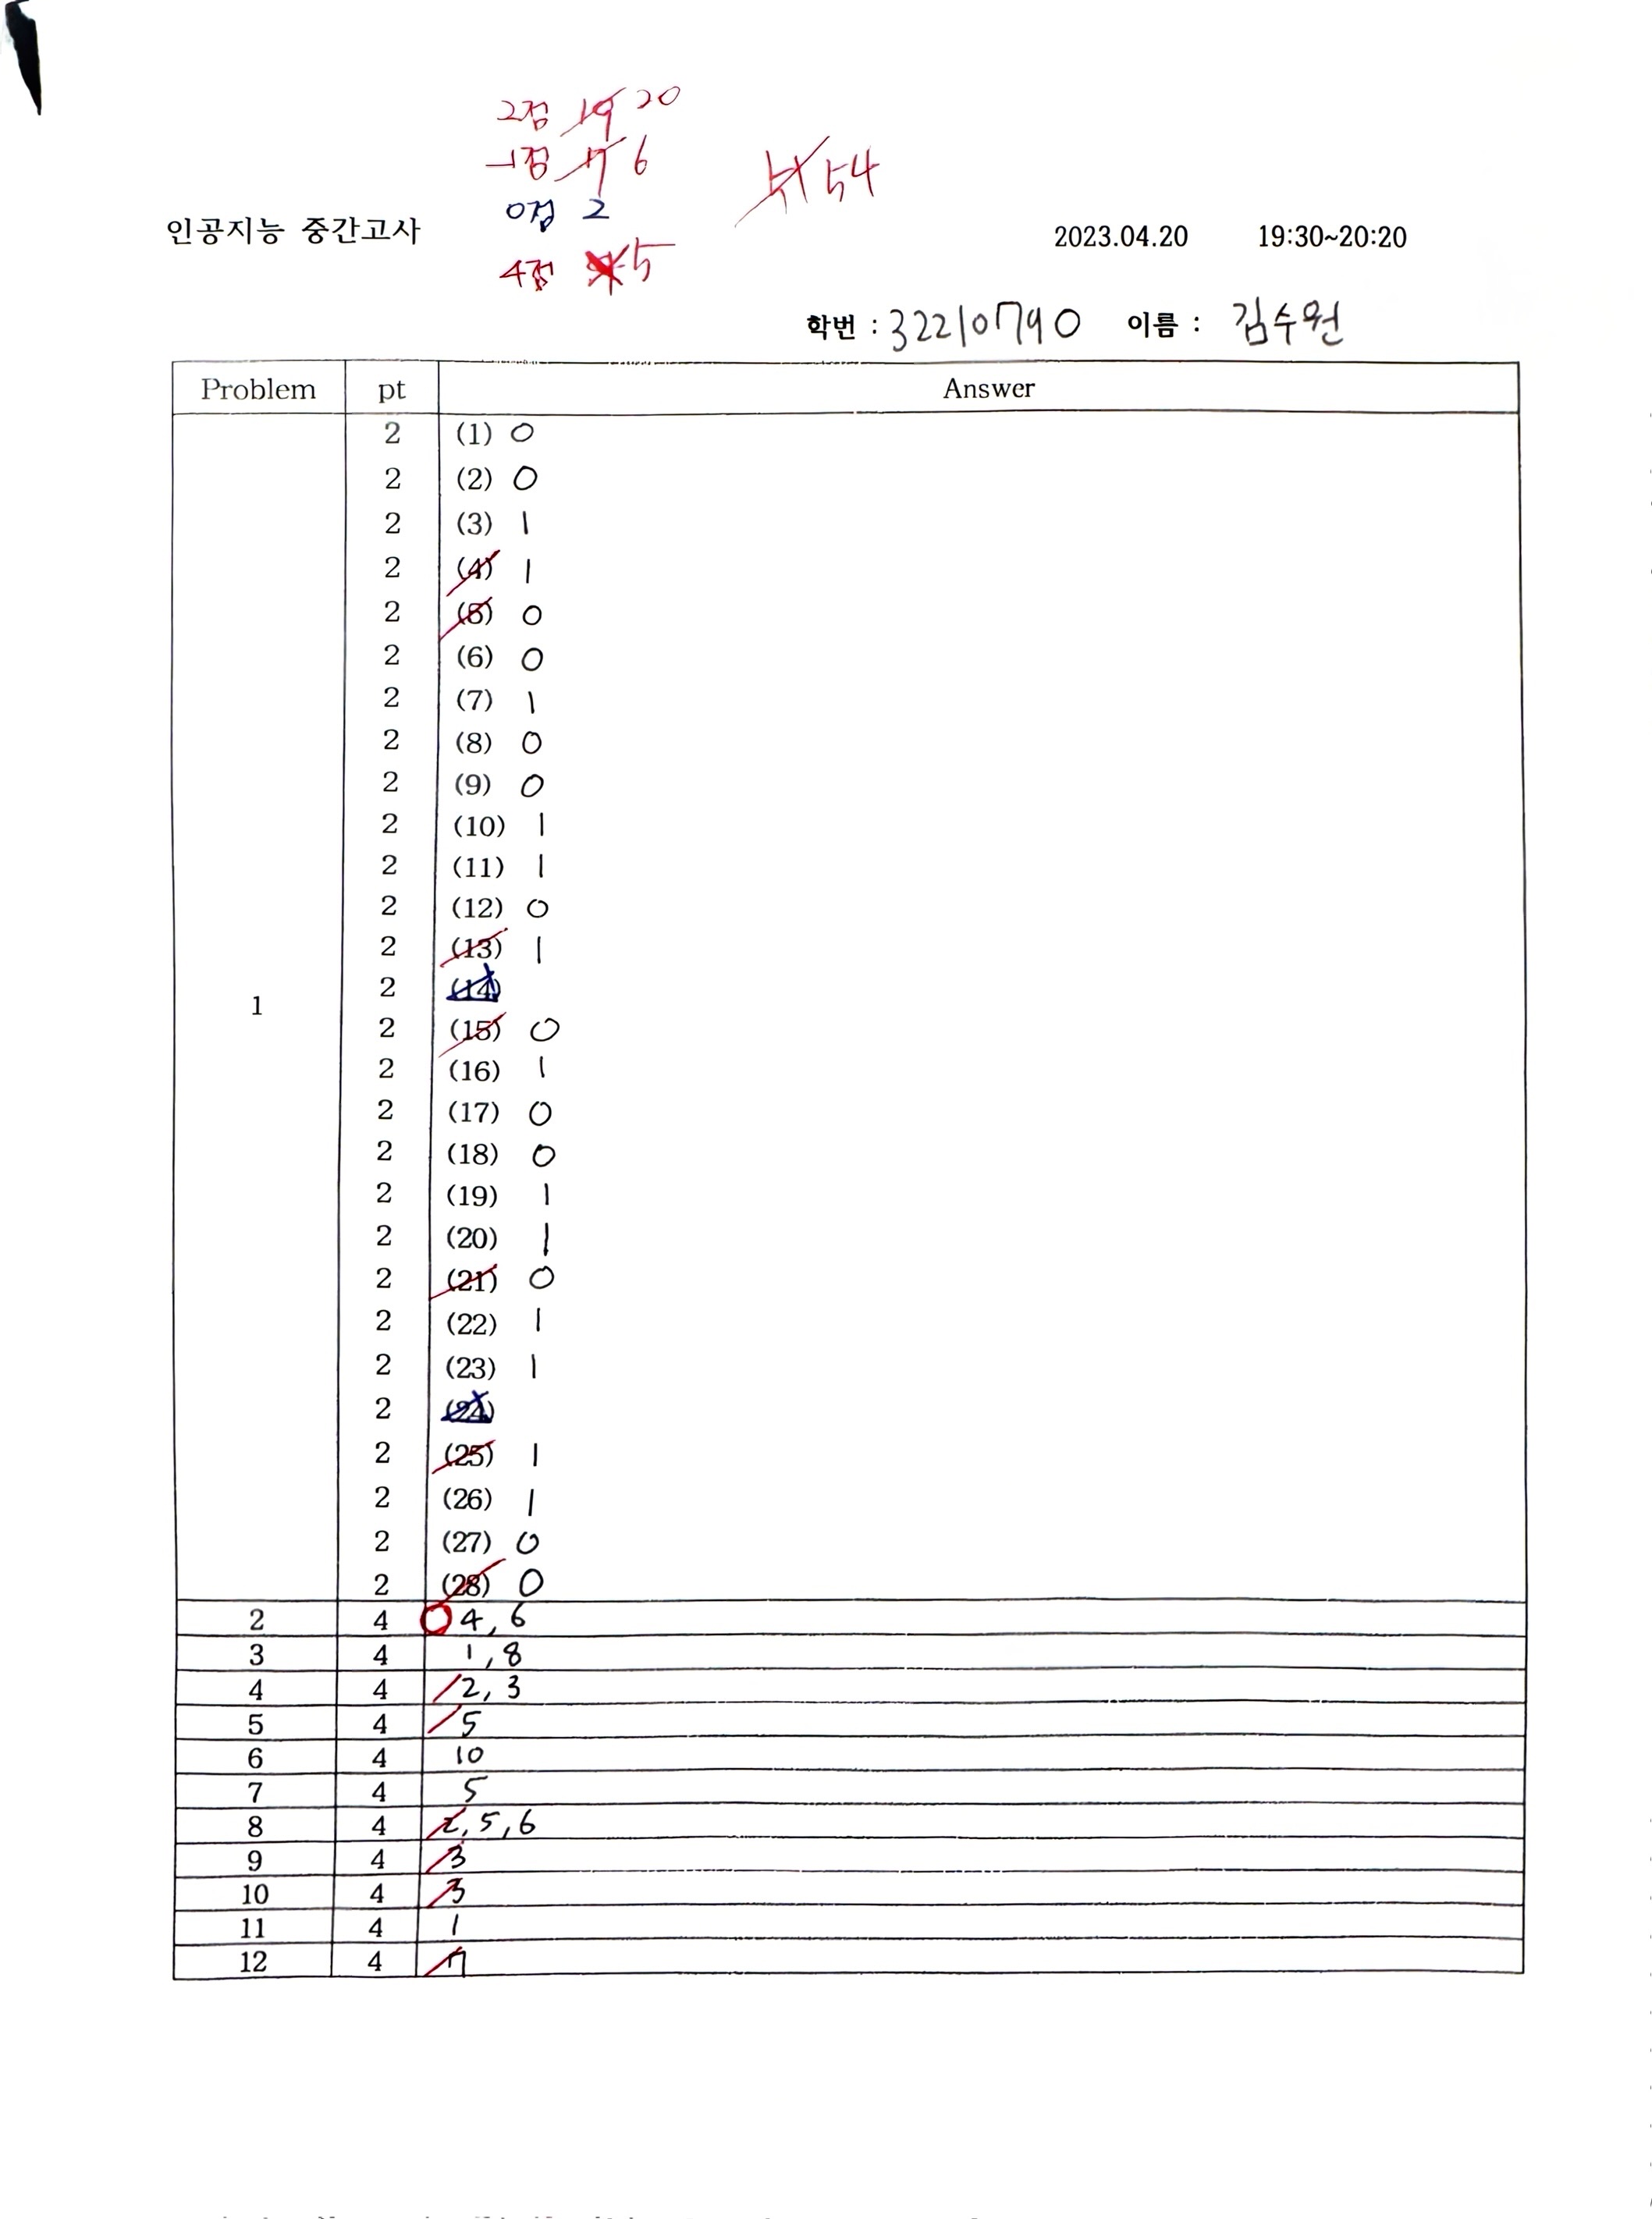 2점 19 20
-1점 7 6
0점 2
51 54
인공지능 중간고사
2023.04.20 19:30~20:20
4점 5
학번 : 32210790 이름 : 김수원
Problem pt Answer
1
2 (1) 0
2 (2) 0
2 (3) 1
2 (4) 1
2 (5) 0
2 (6) 0
2 (7) 1
2 (8) 0
2 (9) 0
2 (10) 1
2 (11) 1
2 (12) 0
2 (13) 1
2 (14)
2 (15) 0
2 (16) 1
2 (17) 0
2 (18) 0
2 (19) 1
2 (20) 1
2 (21) 0
2 (22) 1
2 (23) 1
2 (24)
2 (25) 1
2 (26) 1
2 (27) 0
2 (28) 0
2 4 4, 6
3 4 1, 8
4 4 2, 3
5 4 5
6 4 10
7 4 5
8 4 2, 5, 6
9 4 3
10 4 3
11 4 1
12 4 7